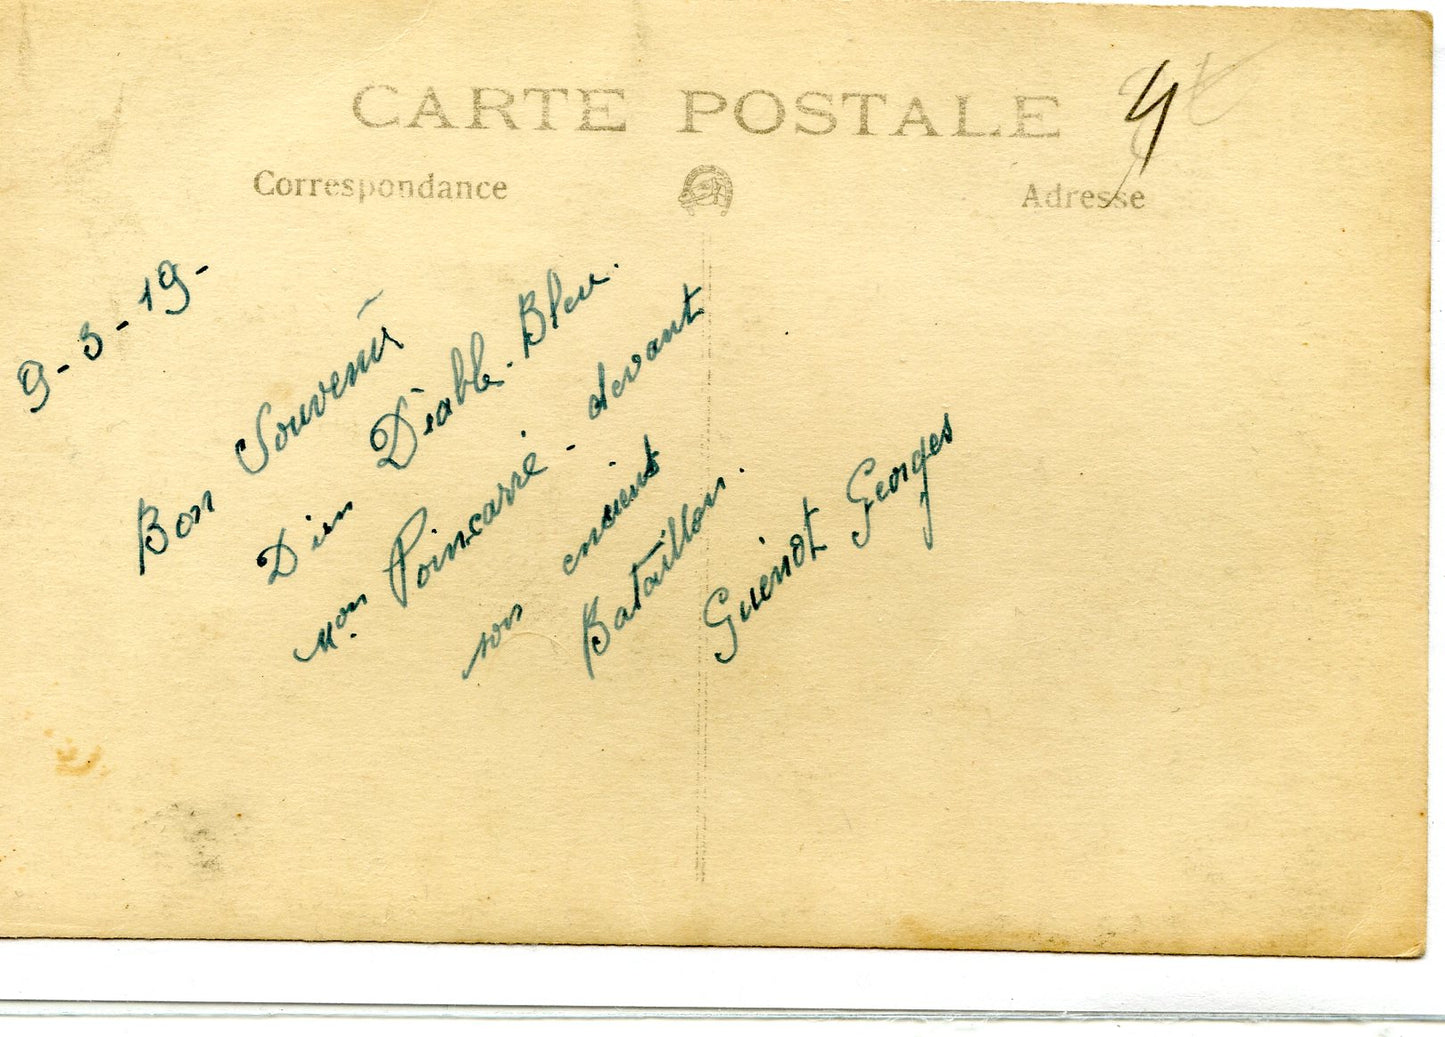 CARTE POSTALE
Correspondance
Adresse
9-3-19-
Bon Souvenir
D'un Diable-Bleu.
Mon Poincarré - devant
son ancient
Bataillon.
Guenot Georges